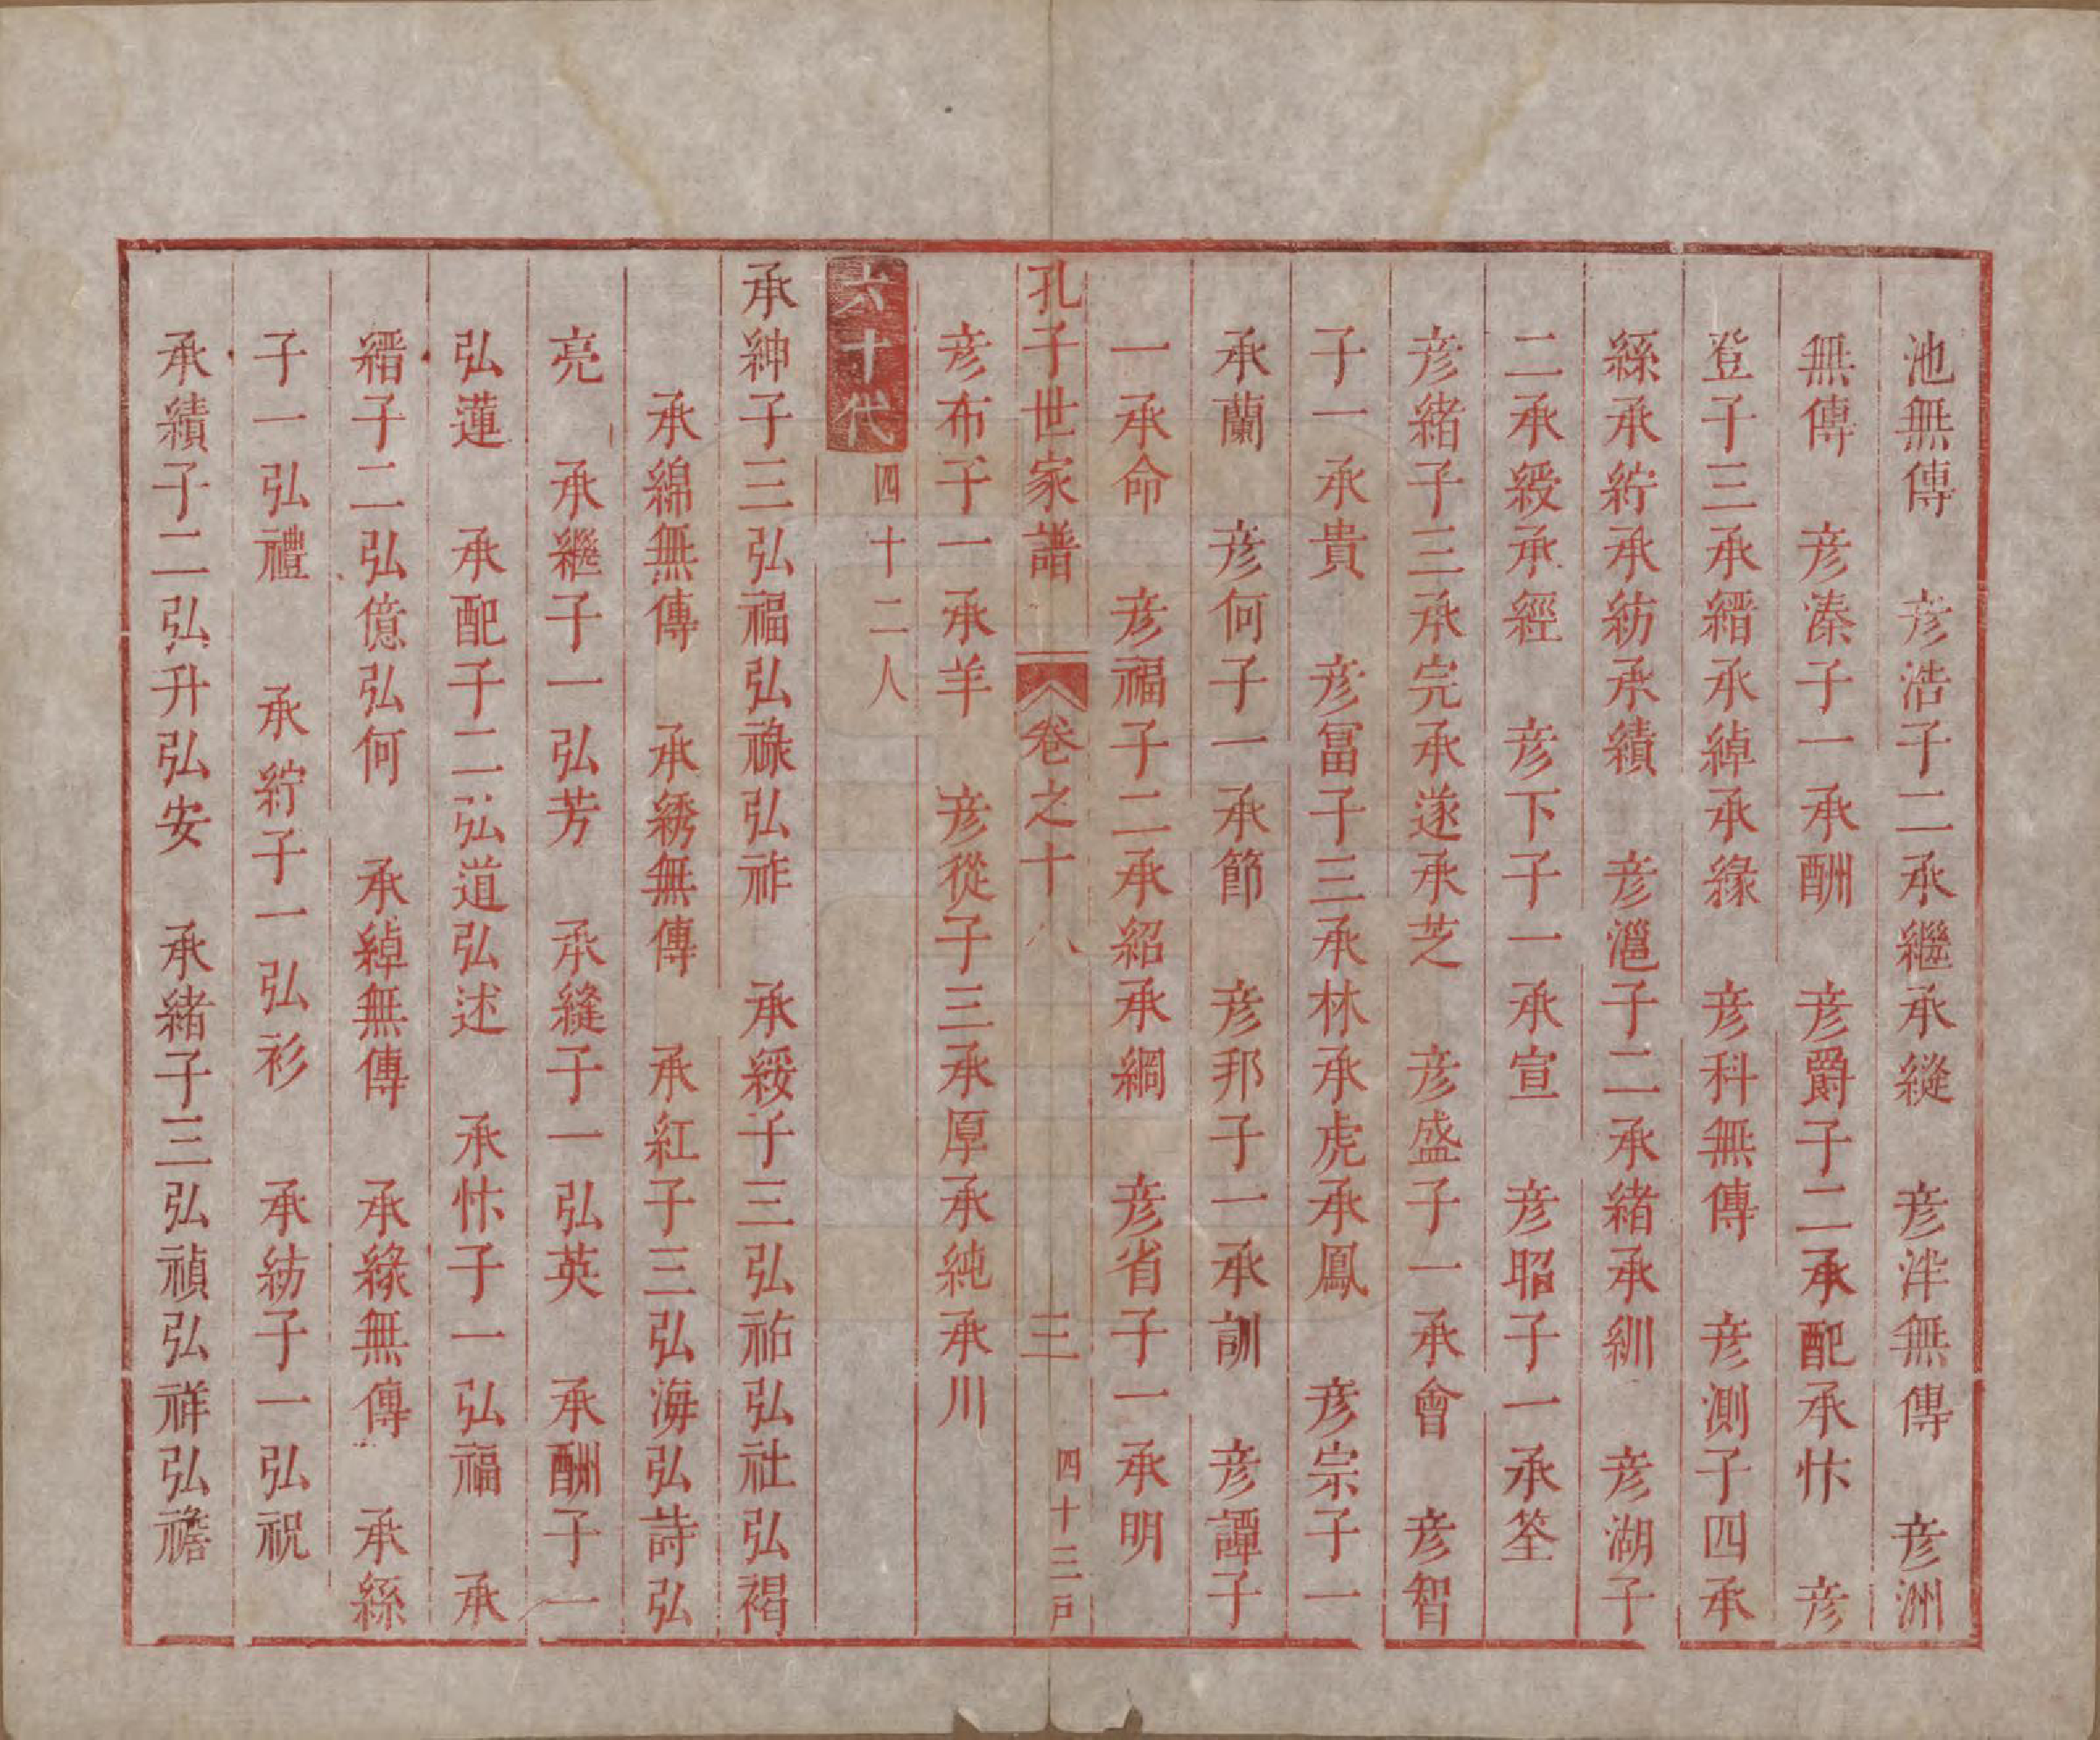 池無傳　彥浩子二承繼承縱　彥泮無傳　彥洲
無傳　彥溱子一承酬　彥爵子二承配承忭　彥
登子三承縉承綽承緣　彥科無傳　彥測子四承
絲承紵承紡承績　彥滬子二承緒承紃　彥湖子
二承綬承經　彥下子一承宣　彥昭子一承筌
彥緒子三承完承遂承芝　彥盛子一承會　彥智
子一承貴　彥富子三承林承虎承鳳　彥宗子一
承蘭　彥何子一承節　彥邦子一承訓　彥譚子
一承命　彥福子二承紹承綱　彥省子一承明
孔子世家譜　卷之十八　三　四十二戶
彥布子一承羊　彥從子三承厚承純承川
六十代　四十二人
承紳子三弘福弘祿弘祚　承綏子三弘祐弘社弘禓
承綿無傳　承綉無傳　承紅子三弘海弘詩弘
亮　承繼子一弘芳　承縫子一弘英　承酬子一
弘蓮　承配子二弘道弘述　承忭子一弘福　承
縉子二弘億弘何　承綽無傳　承緣無傳　承絲
子一弘禮　承紵子一弘衫　承紡子一弘祝
承績子二弘升弘安　承緒子三弘禎弘祥弘襜